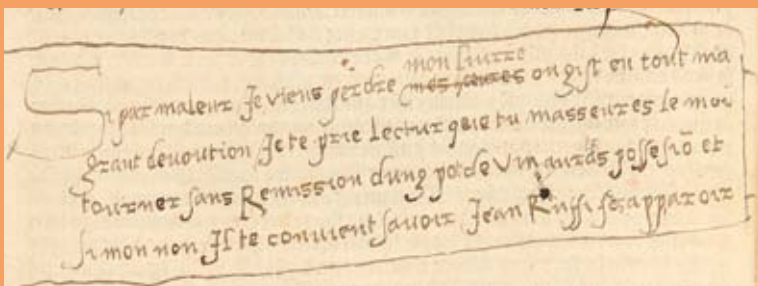 mon livrre
Si par maleur Je viens perdre mes heures ou gist en tout ma
grant devoution Je te prie Lectur que tu masseures Le moi
tourner sans Remission dung pot de vin auras possesiō et
si mon non Il te convient savoir Jean Ruffi fez apparoir